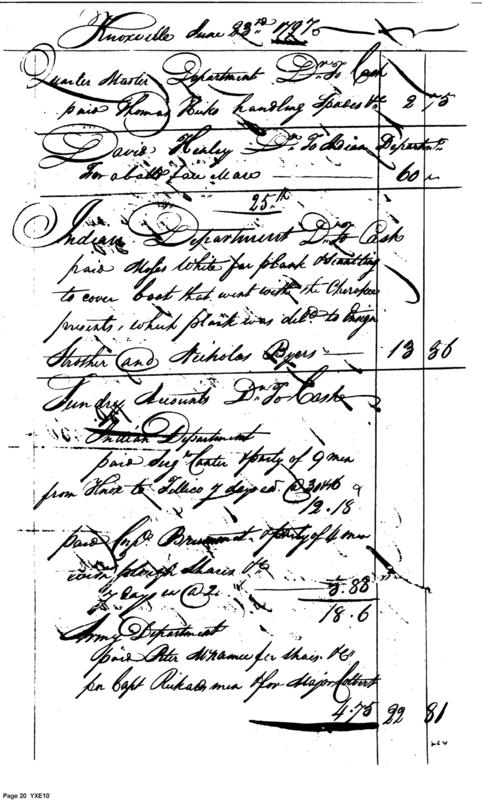 Knoxville June 23rd 1797
Quarter Master Department Dr To Cash
paid Thomas Hicks handling Spades &c 2 75
David Henley Dr To Indian Departmt
For a ball face Mare 60
25th
Indian Department Dr To Cash
paid Moses White for plank & Scantling
to cover boat that went with the Cherokee
presents, which plank was deld to Ensign
Strother and Nicholas Byers 13 36
Sundry Accounts Dr To Cash
Indian Department
paid Sergt Canter & party of 9 men
from Knox to Tellico 7 days ea @
12.18
paid Corpl & party of 4 men
with plough Shares &c
7 days ea @ 5.88
18.6
Army Department
paid Peter McNamee for Shoes &c
for Capt Rickards men & for Major Colbert
4.75 22 81
Page 20 YXE10